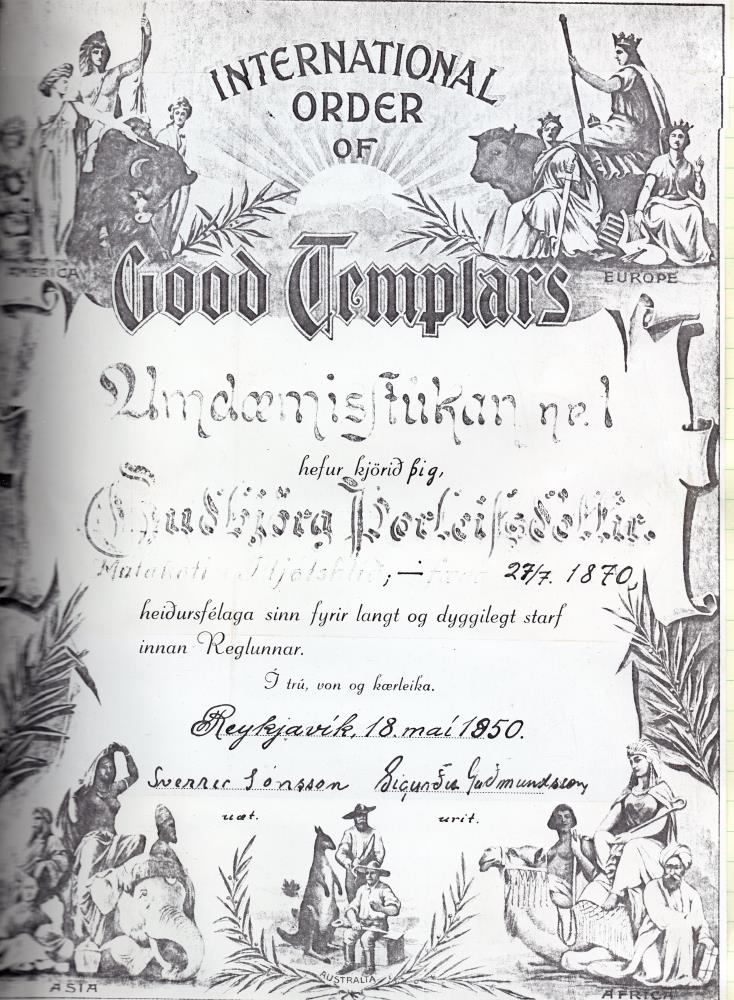 INTERNATIONAL
ORDER
OF
AMERICA
EUROPE
Good Templars
Umdæmisstúkan nr. 1
hefur kjörið þig,
Guðbjörg Þorleifsdóttir.
Fljótshlíð; — 27/7. 1870,
heiðursfélaga sinn fyrir langt og dyggilegt starf
innan Reglunnar.
Í trú, von og kærleika.
Reykjavík, 18. maí 1950.
Sverrir Jónsson Sigurður Guðmundsson
uæt. urit.
ASIA
AUSTRALIA
AFRICA